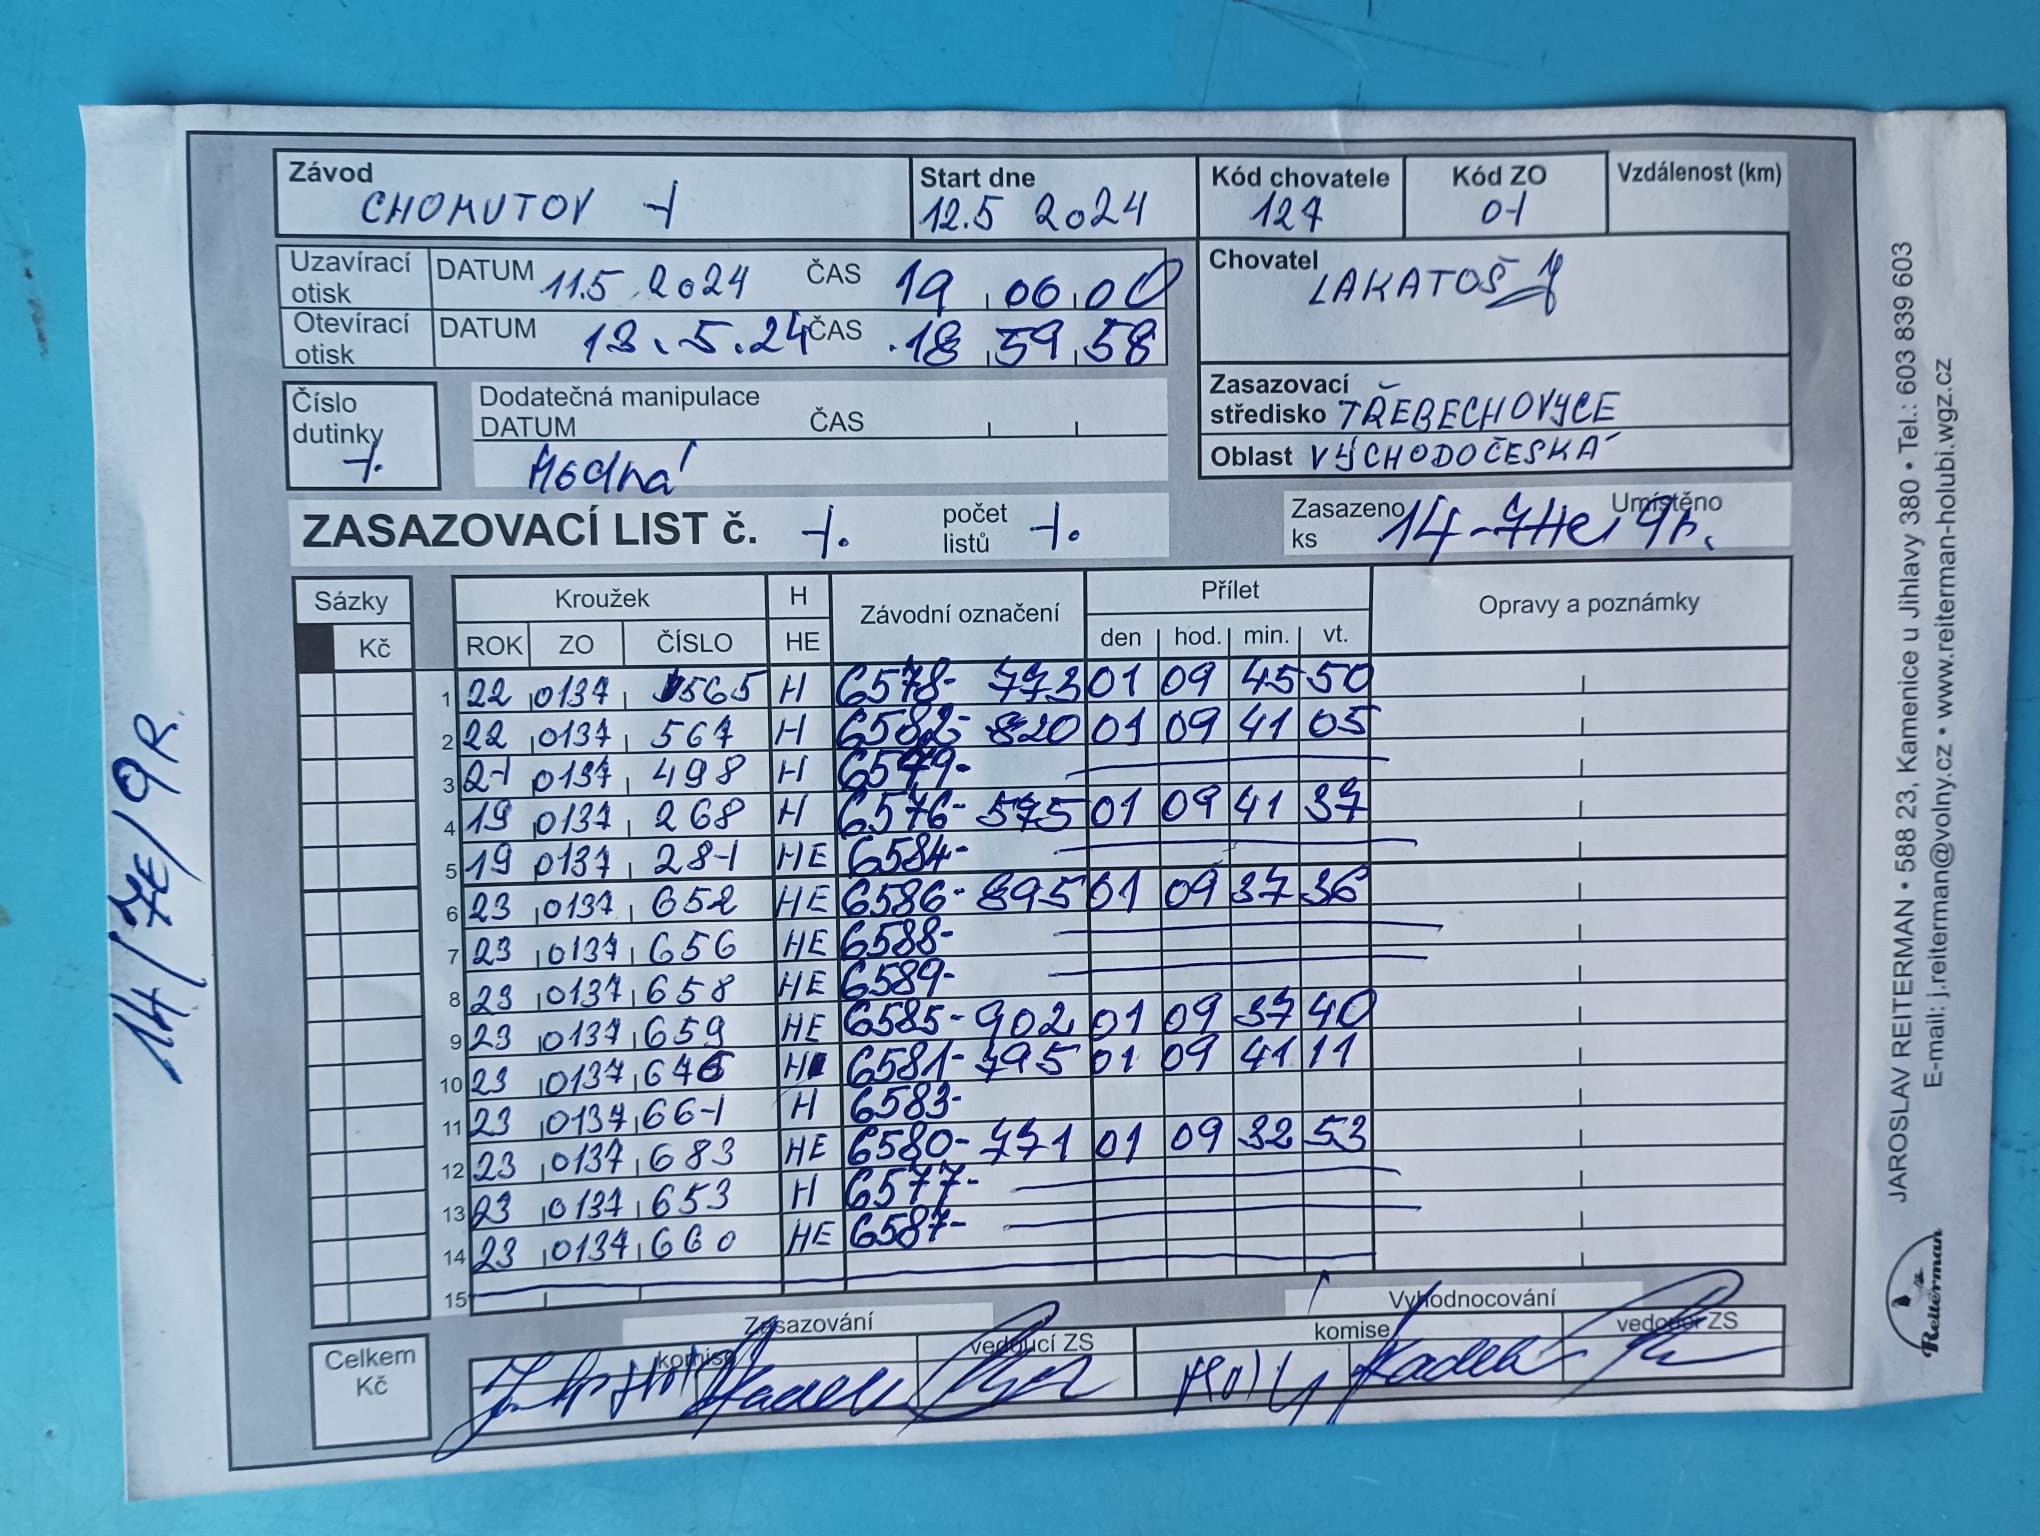 Závod Start dne Kód chovatele Kód ZO Vzdálenost (km)
CHOMUTOV 1 12.5 2024 127 01
Uzavírací otisk DATUM 11.5.2024 ČAS 19 00 00
Otevírací otisk DATUM 13.5.24 ČAS 18 59 58
Chovatel LAKATOŠ J
Číslo dutinky 1.
Dodatečná manipulace
DATUM ČAS
Hodná
Zasazovací středisko TŘEBECHOVYCE
Oblast VÝCHODOČESKÁ
ZASAZOVACÍ LIST č. 1. počet listů 1.
Zasazeno ks 14-7He, 9r. Umístěno
Sázky Kroužek H Závodní označení Přílet Opravy a poznámky
Kč ROK ZO ČÍSLO HE den hod. min. vt.
1 22 0137 565 H 6578- 773 01 09 45 50
2 22 0137 567 H 6582- 820 01 09 41 05
3 21 0137 498 H 6579-
4 19 0137 268 H 6576- 575 01 09 41 37
5 19 0137 281 HE 6584-
6 23 0137 652 HE 6586- 895 01 09 37 36
7 23 0137 656 HE 6588-
8 23 0137 658 HE 6589-
9 23 0137 659 HE 6585- 902 01 09 37 40
10 23 0137 H 6581- 795 01 09 41 11
11 23 0137 661 H 6583-
12 23 0137 683 HE 6580- 771 01 09 32 53
13 23 0137 653 H 6577-
14 23 0137 660 HE 6587-
15
Zasazování Vyhodnocování
komise vedoucí ZS komise vedoucí ZS
Celkem Kč
14/7HE/9R.
JAROSLAV REITERMAN • 588 23, Kamenice u Jihlavy 380 • Tel.: 603 839 603
E-mail: j.reiterman@volny.cz • www.reiterman-holubi.wgz.cz
Reiterman